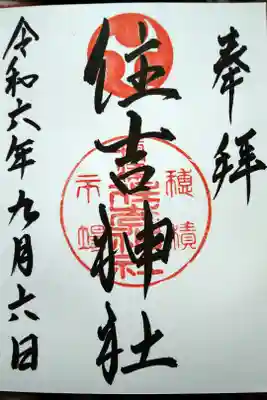 奉拝
住吉神社
令和六年九月六日
穂積